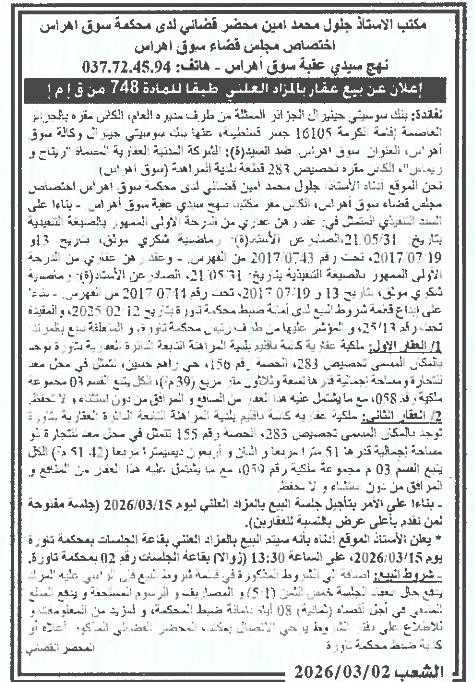 مكتب الاستاذ جلول محمد امين محضر قضائي لدى محكمة سوق اهراس
اختصاص مجلس قضاء سوق اهراس
نهج سيدي عقبة سوق أهراس - هاتف: 037.72.45.94
إعلان عن بيع عقار بالمزاد العلني طبقا للمادة 748 من ق إ م إ
لفائدة: بنك سوسيتي جينيرال الجزائر الممثلة من طرف مديره العام، الكائن مقره بالجزائر
العاصمة إقامة الكرمة 16105 جسر قسنطينة، عنها بنك سوسيتي جينيرال وكالة سوق
أهراس، العنوان سوق أهراس. ضد السيد(ة): الشركة المدنية العقارية المسماة "ريتاج و
ريماس"، الكائن مقره تحصيص 283 قطعة بلدية المراهنة (سوق أهراس)
نحن الموقع أدناه الأستاذ: جلول محمد امين قضائي لدى محكمة سوق اهراس اختصاص
مجلس قضاء سوق اهراس، الكائن مقر مكتبنا نهج سيدي عقبة سوق أهراس - بناءا على
السند التنفيذي المتمثل في: عقد رهن عقاري من الدرجة الأولى الممهور بالصيغة التنفيذية
بتاريخ: 21/05/31، الصادر عن الأستاذ(ة): رماضنية شكري موثق، بتاريخ 13و
19-07-2017، تحت رقم 2017/0743 من الفهرس. - وعقد رهن عقاري من الدرجة
الأولى الممهور بالصيغة التنفيذية بتاريخ: 21/05/31، الصادر عن الأستاذ(ة): رماضنية
شكري موثق، بتاريخ 13 و 19/07-2017، تحت رقم 2017/0744 من الفهرس. - بناءا
على إيداع قائمة شروط البيع لدى أمانة ضبط محكمة تاورة بتاريخ 12-02-2025، والمقيدة
تحت رقم 25/13، و المؤشر عليها من طرف رئيس محكمة تاورة، و المتعلقة ببيع بالمزاد:
1/ العقار الأول: ملكية عقارية كائنة بإقليم بلدية المراهنة التابعة الدائرة العقارية بتاورة توجد
بالمكان المسمى تحصيص 283، الحصة رقم 156، حي راهم حسين، تتمثل في محل معد
للتجارة و مساحة إجمالية قدرها تسعة وثلاثون متر مربع (39م²)، الكل يتبع القسم 03 مجموعة
ملكية رقم 058، مع ما يشتمل عليه هذا العقار من المنافع و المرافق من دون استثناء و لا تحفظ
2/ العقار الثاني: ملكية عقارية كائنة بإقليم بلدية المراهنة التابعة الدائرة العقارية بتاورة
توجد بالمكان المسمى تحصيص 283، الحصة رقم 155 تتمثل في محل معد للتجارة ذو
مساحة إجمالية قدرها 51 مترا مربعا و اثنان و أربعون ديسيمترا مربعا (42 51 م²) الكل
يتبع القسم 03 م مجموعة ملكية رقم 059، مع ما يشتمل عليه هذا العقار من المنافع و
المرافق من دون استثناء و لا تحفظ
- بناءا على الأمر بتأجيل جلسة البيع بالمزاد العلني ليوم 2026/03/15 (جلسة مفتوحة
لمن تقدم بأعلى عرض بالنسبة للعقارين).
* يعلن الأستاذ الموقع أدناه بأنه سيتم البيع بالمزاد العلني بقاعة الجلسات بمحكمة تاورة
يوم 2026/03/15، على الساعة 13:30 (زوالا) بقاعة الجلسات رقم 02 بمحكمة تاورة.
- شروط البيع: إضافة إلى الشروط المذكورة في قائمة شروط البيع فإن الراسي عليه المزاد
يدفع حال انعقاد الجلسة خمس الثمن (1/5) و المصاريف و الرسوم المستحقة و يدفع المبلغ
المتبقي في أجل أقصاه (ثمانية) 08 أيام بأمانة ضبط المحكمة، و لمزيد من المعلومات و
للاطلاع على دفتر الشروط يرجى الاتصال بمكتب المحضر القضائي المذكور أعلاه أو
كتابة ضبط محكمة تاورة
المحضر القضائي
الشعب 2026/03/02